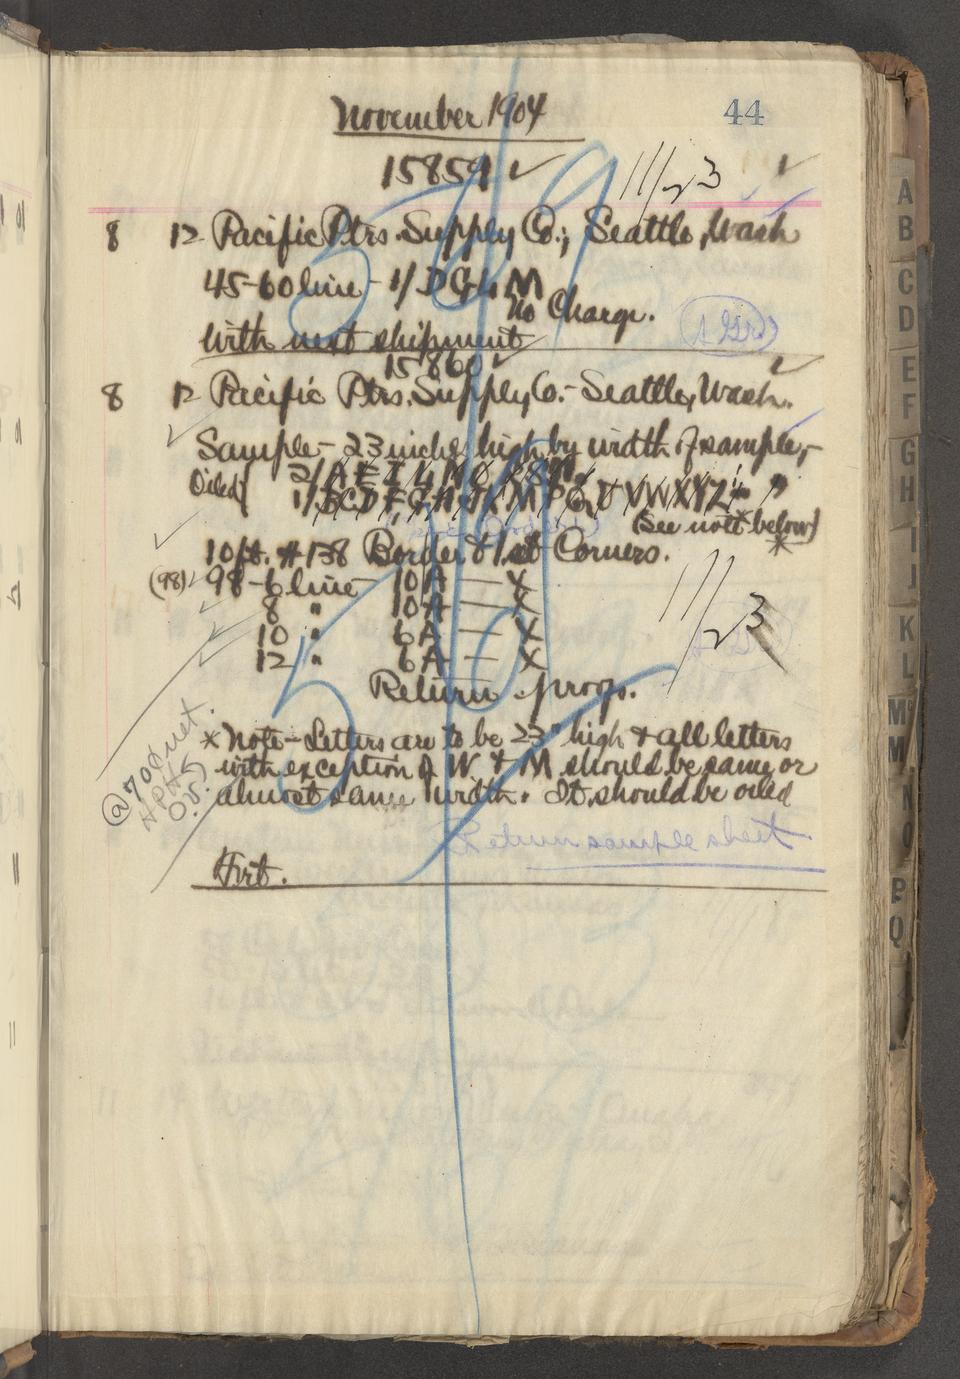 November 1904
44
15859 ✓
11/23
8 12 Pacific Ptrs. Supply Co.; Seattle, Wash
45-60 line - 1/ D G L M
No Charge.
with next shipment
15860 ✓
8 12 Pacific Ptrs. Supply Co. - Seattle, Wash.
Sample - 23 inches high by width of sample,-
Oiled
(See note below)
*
10 ft. #138 Border & 1 set Corners.
(98) 98-6 line 10A — X
8 " 10A — X
10 " 6A — X
12 " 6A — X
11/23
Return proof.
* Note - Letters are to be 23" high & all letters
with exception of W & M should be same or
almost same width. It should be oiled
@ 70¢ net.
Return sample sheet
Frt.
A
B
C
D
E
F
G
H
I
J
K
L
M
N
O
P
Q